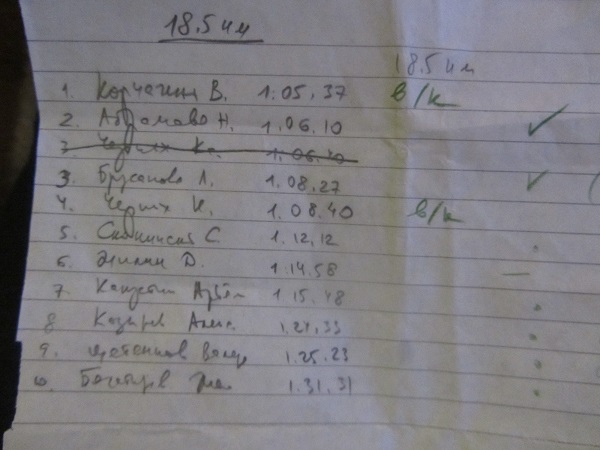 18.5 км
18.5 км
1. Корчагин В. 1.05.37 в/к
2. Абрамова Н. 1.06.10
3 Черных 1.06.40
3. Брусанова Л. 1.08.27
4. Черных И. 1.08.40 в/к
5. С. 1.12.12
6. Жилин Д. 1.14.58
7. 1.15.48
8 Козырев Алекс.
9. 1.25.23
10. 1.31.31